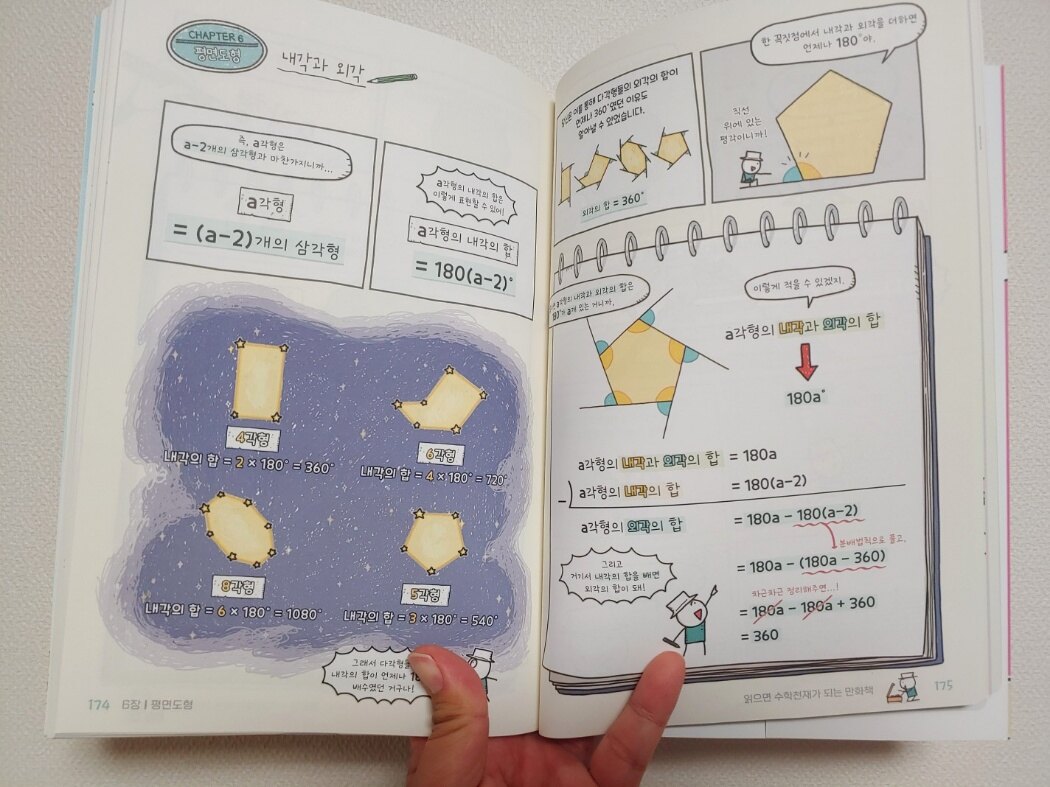 CHAPTER 6
평면도형
내각과 외각
즉, a각형은
a-2개의 삼각형과 마찬가지니까...
a각형
= (a-2)개의 삼각형
a각형의 내각의 합은
이렇게 표현할 수 있어!
a각형의 내각의 합
= 180(a-2)°
4각형
내각의 합 = 2 × 180° = 360°
6각형
내각의 합 = 4 × 180° = 720°
8각형
내각의 합 = 6 × 180° = 1080°
5각형
내각의 합 = 3 × 180° = 540°
그래서 다각형들
내각의 합이 언제나
배수였던 거구나!
174 6장 | 평면도형
이를 통해 다각형들의 외각의 합이
언제나 360°였던 이유도
알아낼 수 있었습니다.
외각의 합 = 360°
한 꼭짓점에서 내각과 외각을 더하면
언제나 180°야.
직선
위에 있는
평각이니까!
a각형의 내각과 외각의 합은
180°가 a개 있는 거니까,
이렇게 적을 수 있겠지.
a각형의 내각과 외각의 합
180a°
a각형의 내각과 외각의 합 = 180a
- a각형의 내각의 합 = 180(a-2)
a각형의 외각의 합 = 180a - 180(a-2)
분배법칙으로 풀고,
= 180a - (180a - 360)
차근차근 정리해주면...!
= 180a - 180a + 360
= 360
그리고
거기서 내각의 합을 빼면
외각의 합이 돼!
읽으면 수학천재가 되는 만화책 175